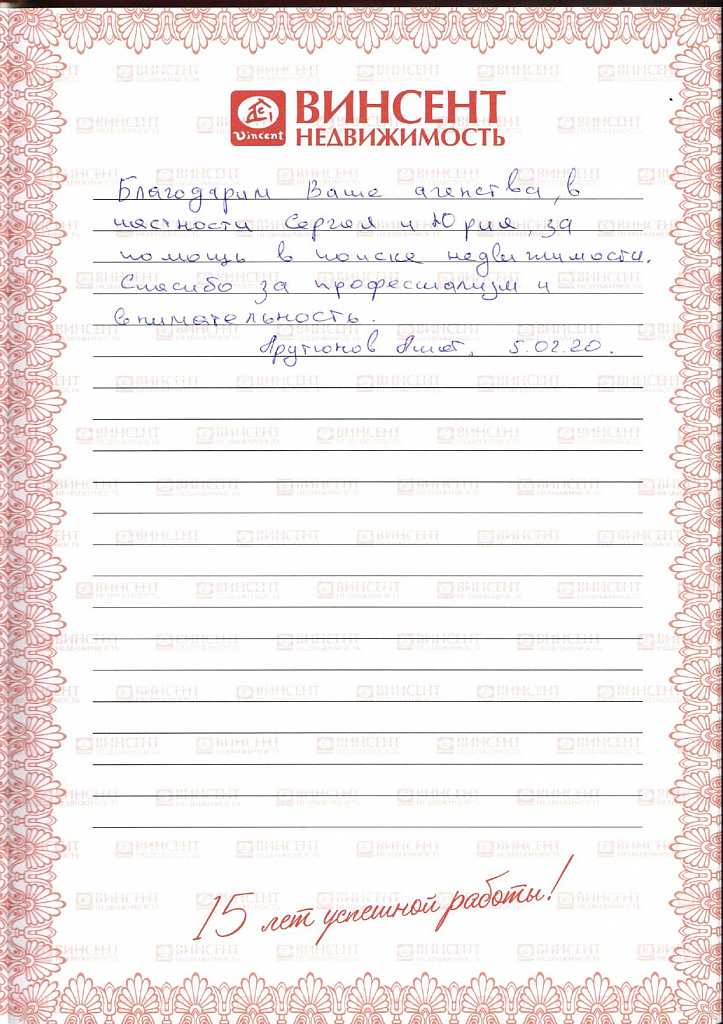 Vincent
ВИНСЕНТ
НЕДВИЖИМОСТЬ
Благодарим Ваше агенства, в
частности Сергея и Юрия, за
помощь в поиске недвижимости.
Спасибо за професиализм и
внимательность.
Арутюнов 5.02.20.
15 лет успешной работы!